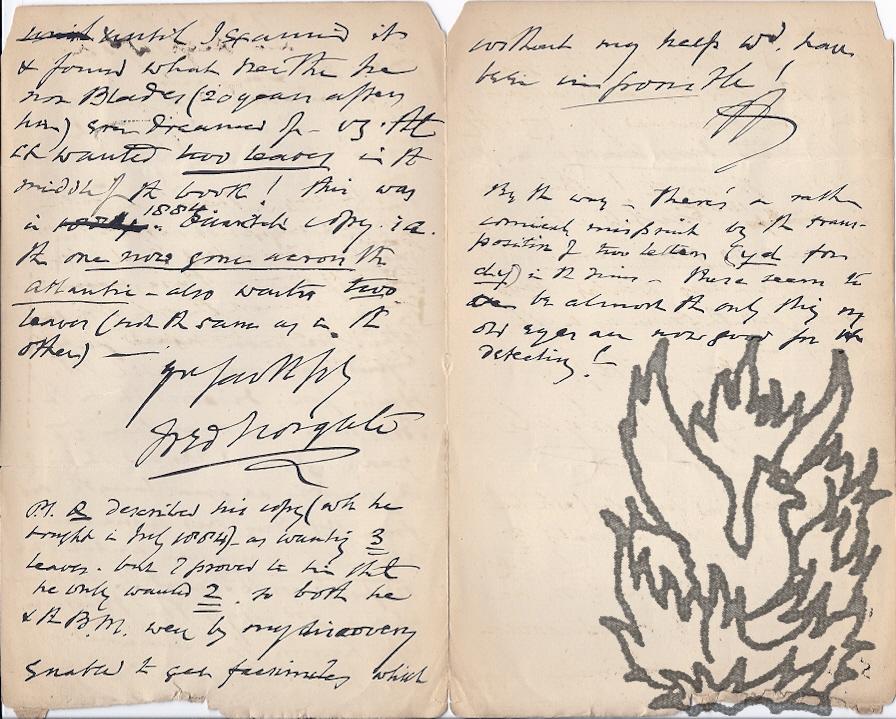 until I scanned it
& found what neither he
nor Blades (20 years after
him) ever dreamed of - viz. that
it wanted two leaves in the
middle of the book! This was
in 1884. copy. i.e.
the one now gone across the
Atlantic - also wants two
leaves (not the same as in the
other) —
Yrs faithfully
Fred Norgate
described his copy (wh he
bought in July 1884) as wanting 3
leaves. but I proved to him that
he only wanted 2. so both he
& the B.M. were by my discovery
enabled to get facsimiles which
without my help wd. have
been impossible!
By the way - there's a rather
comical misprint by the trans-
position of two letters (yd for
dy) in the - these seem to
be almost the only thing my
old eyes are now good for
detecting!